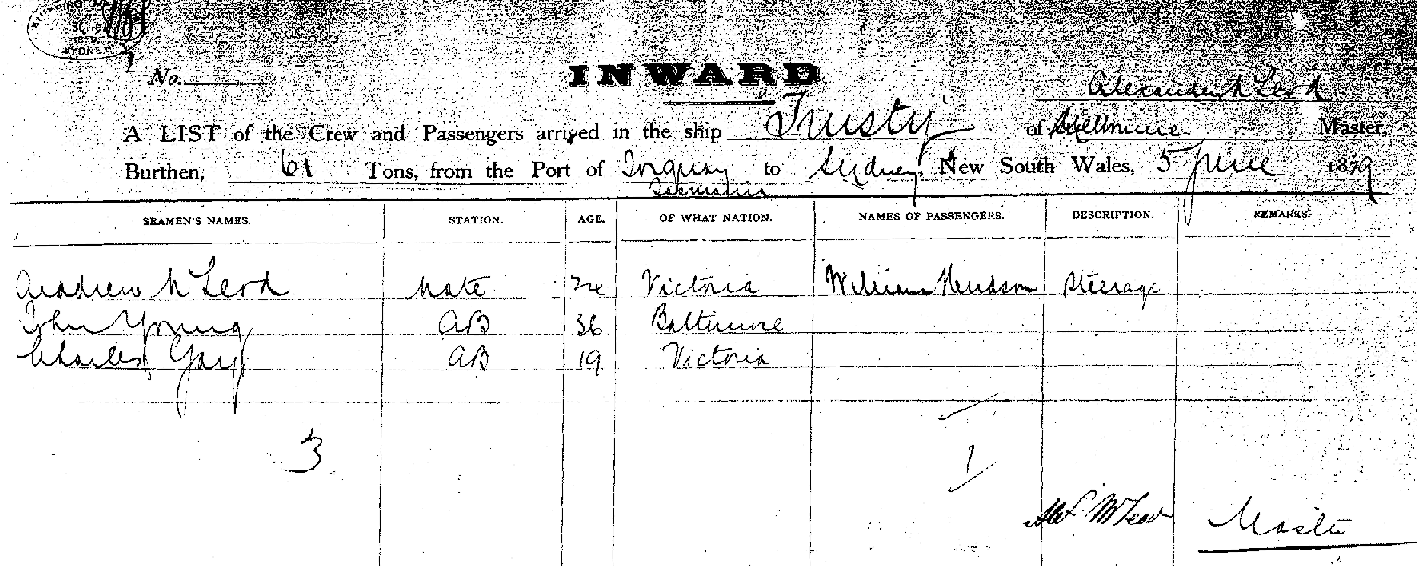 No.
INWARD
Alexander McLeod
A LIST of the Crew and Passengers arrived in the ship Trusty of Melbourne Master,
Burthen, 61 Tons, from the Port of Torquay to Sydney, New South Wales, 5 June 1879
Tasmania
SEAMEN'S NAMES. STATION. AGE. OF WHAT NATION. NAMES OF PASSENGERS. DESCRIPTION. REMARKS.
Andrew McLeod Mate Victoria William Hewdson Steerage
John Young AB 36 Baltimore
Charles Gay AB 19 Victoria
3
1
McLeod Master